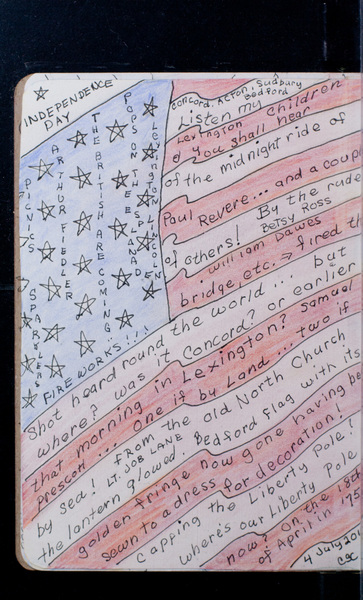 INDEPENDENCE
DAY
PICNICS
SPARKLERS
ARTHUR FIEDLER
THE BRITISH ARE COMING...
POPS ON THE ESPLANADE
Lexington Lincoln
FIREWORKS!!!
Concord, Acton, Sudbury
Bedford
Listen my children
Lexington
& you shall hear
of the midnight ride of
Paul Revere... and a coupl
of others! By the rude
Betsy Ross
William Dawes
bridge, etc. → fired th
Shot heard round the world... but
where? was it Concord? or earlier
that morning in Lexington? Samuel
prescott... One if by Land... two if
by sea! FROM the old North Church
LT. JOB LANE
the lantern glowed. Bedford flag with its
golden fringe now gone having be
sewn to a dress for decoration!
capping the Liberty Pole!
Where's our Liberty Pole
now? On the 18th
of April in
4 July 20
CSC